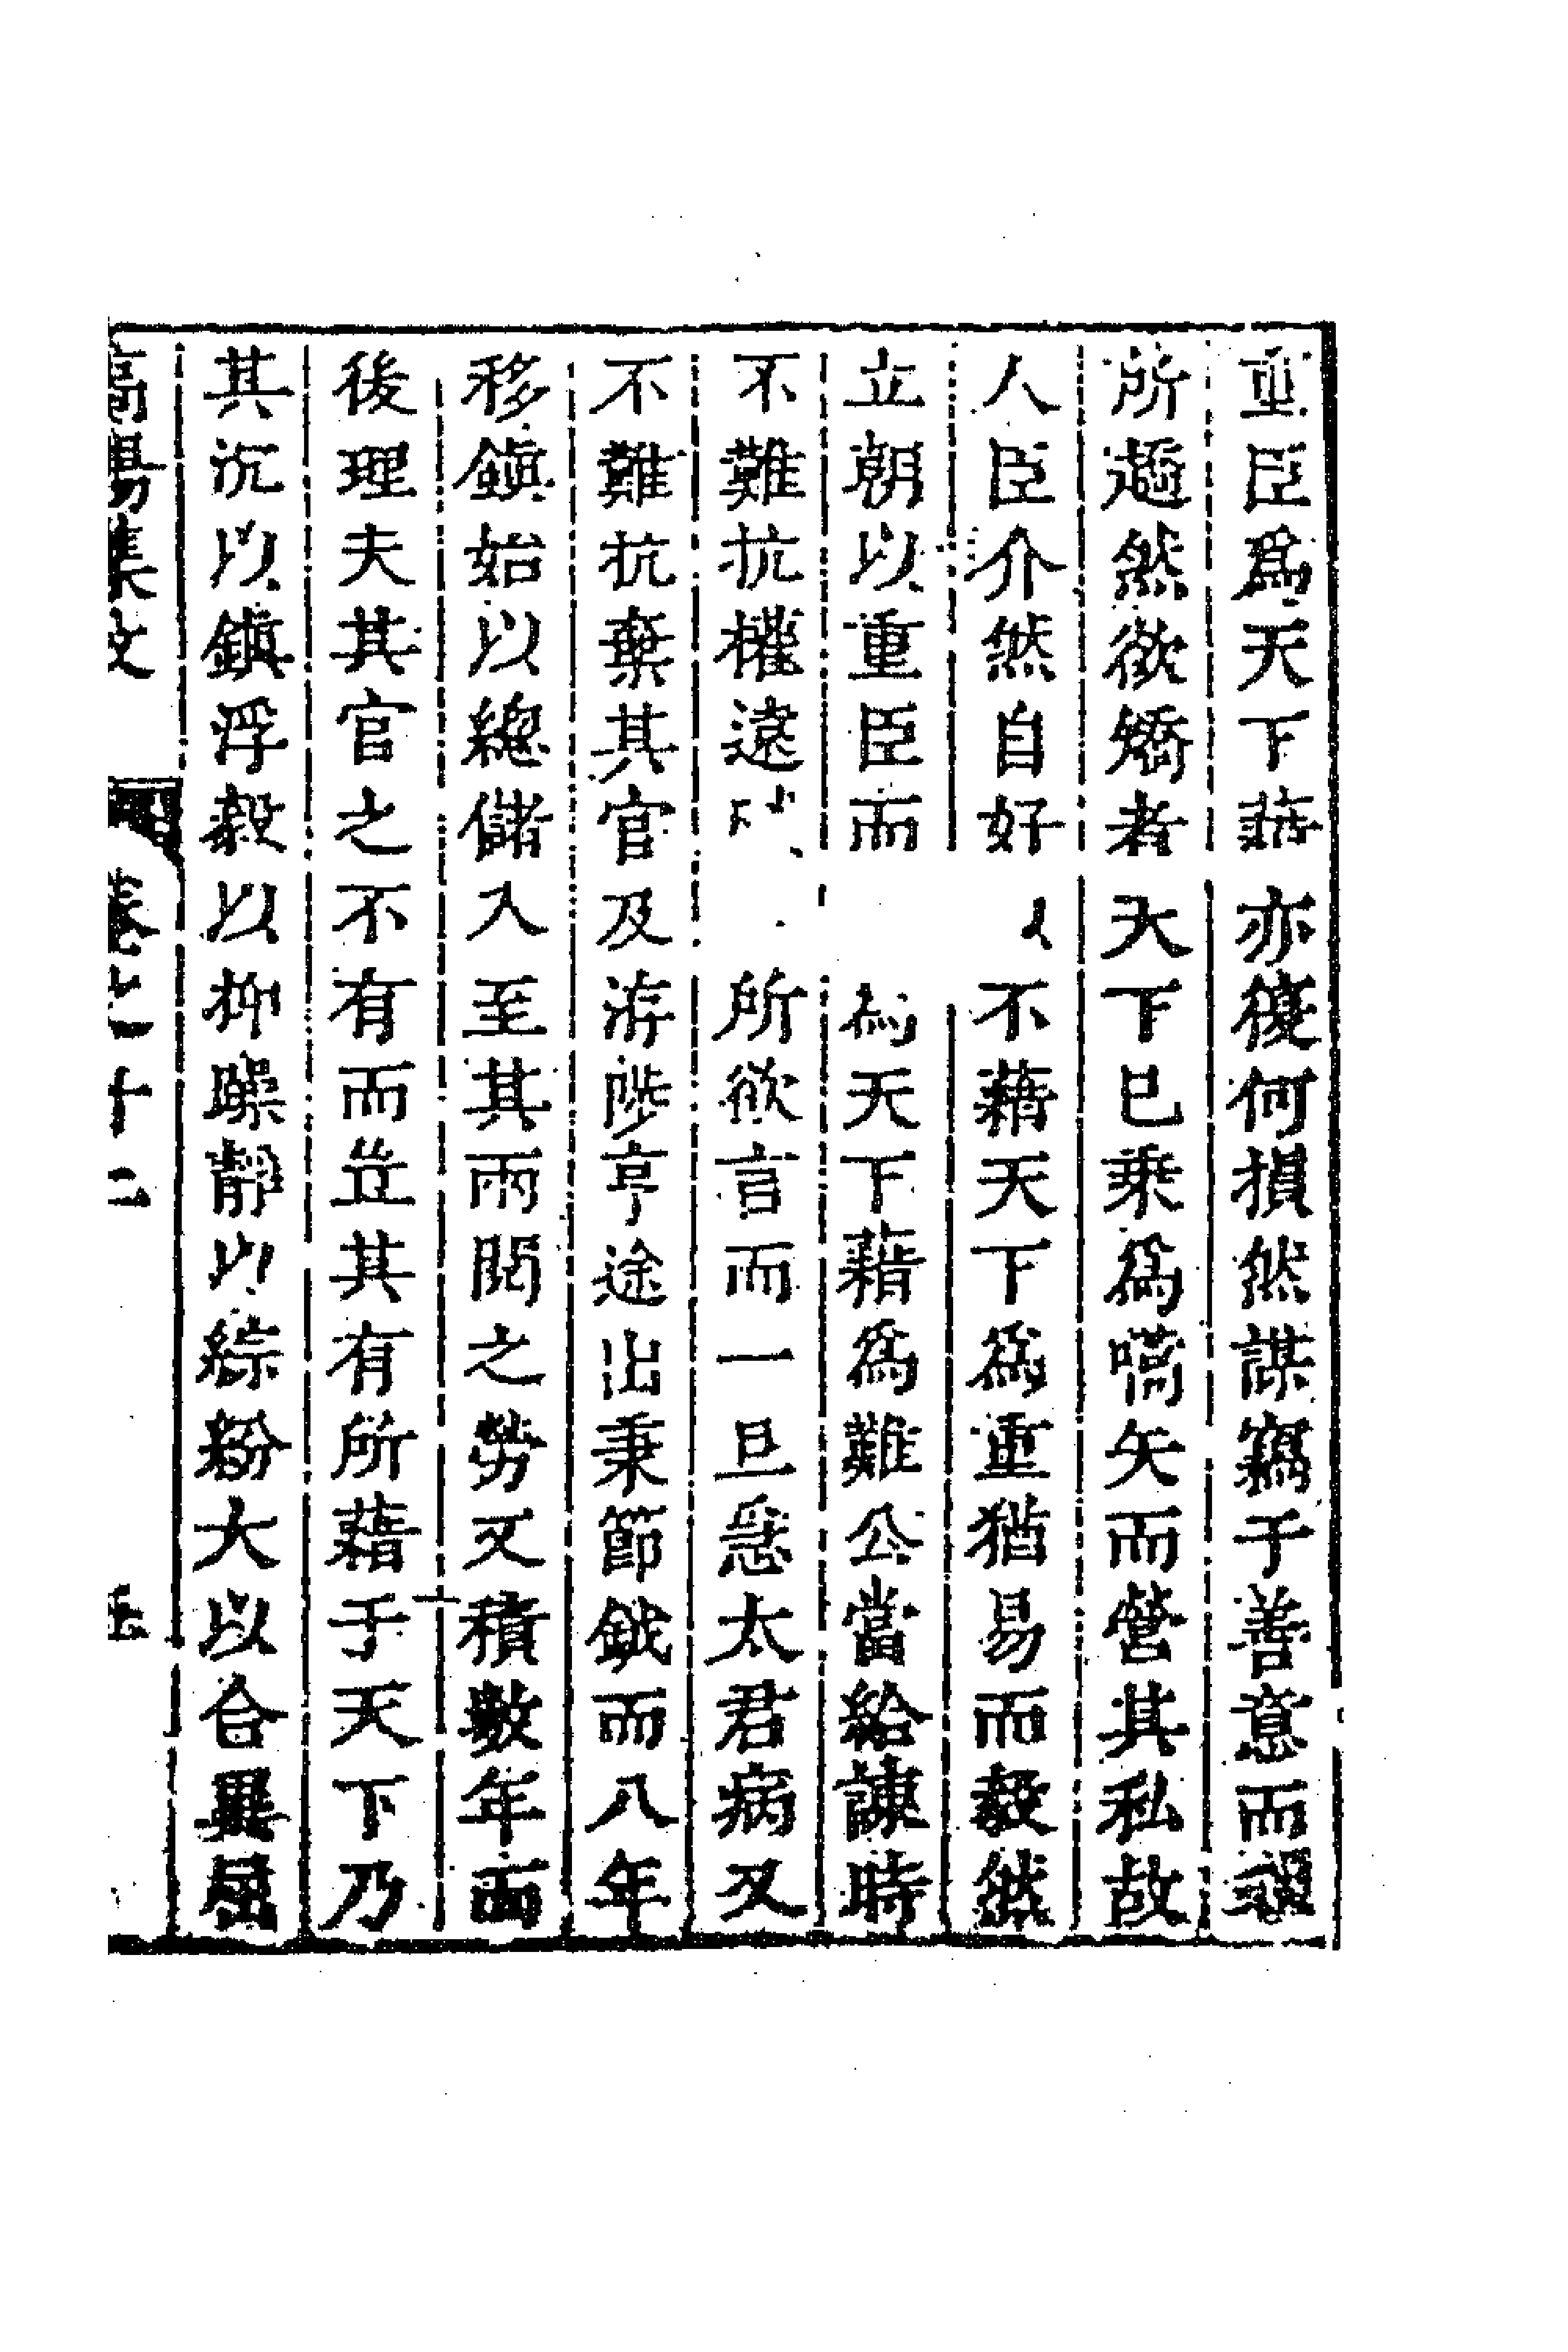 重臣爲天下藉亦復何損然謀竊于善意而
所趨然欲矯者天下已乘爲嚆矢而營其私故
人臣介然自好不藉天下爲重猶易而毅然
立朝以重臣而爲天下藉爲難公當給諫時
不難抗權遠所欲言而一旦念太君病又
不難抗棄其官及洊陟亨途出秉節鉞而八年
移鎮始以總儲入至其兩閒之勞又積數年而
後理夫其官之不有而豈其有所藉于天下乃
其沉以鎮浮毅以抑躁靜以綜紛大以合異
高陽集文 卷之十二